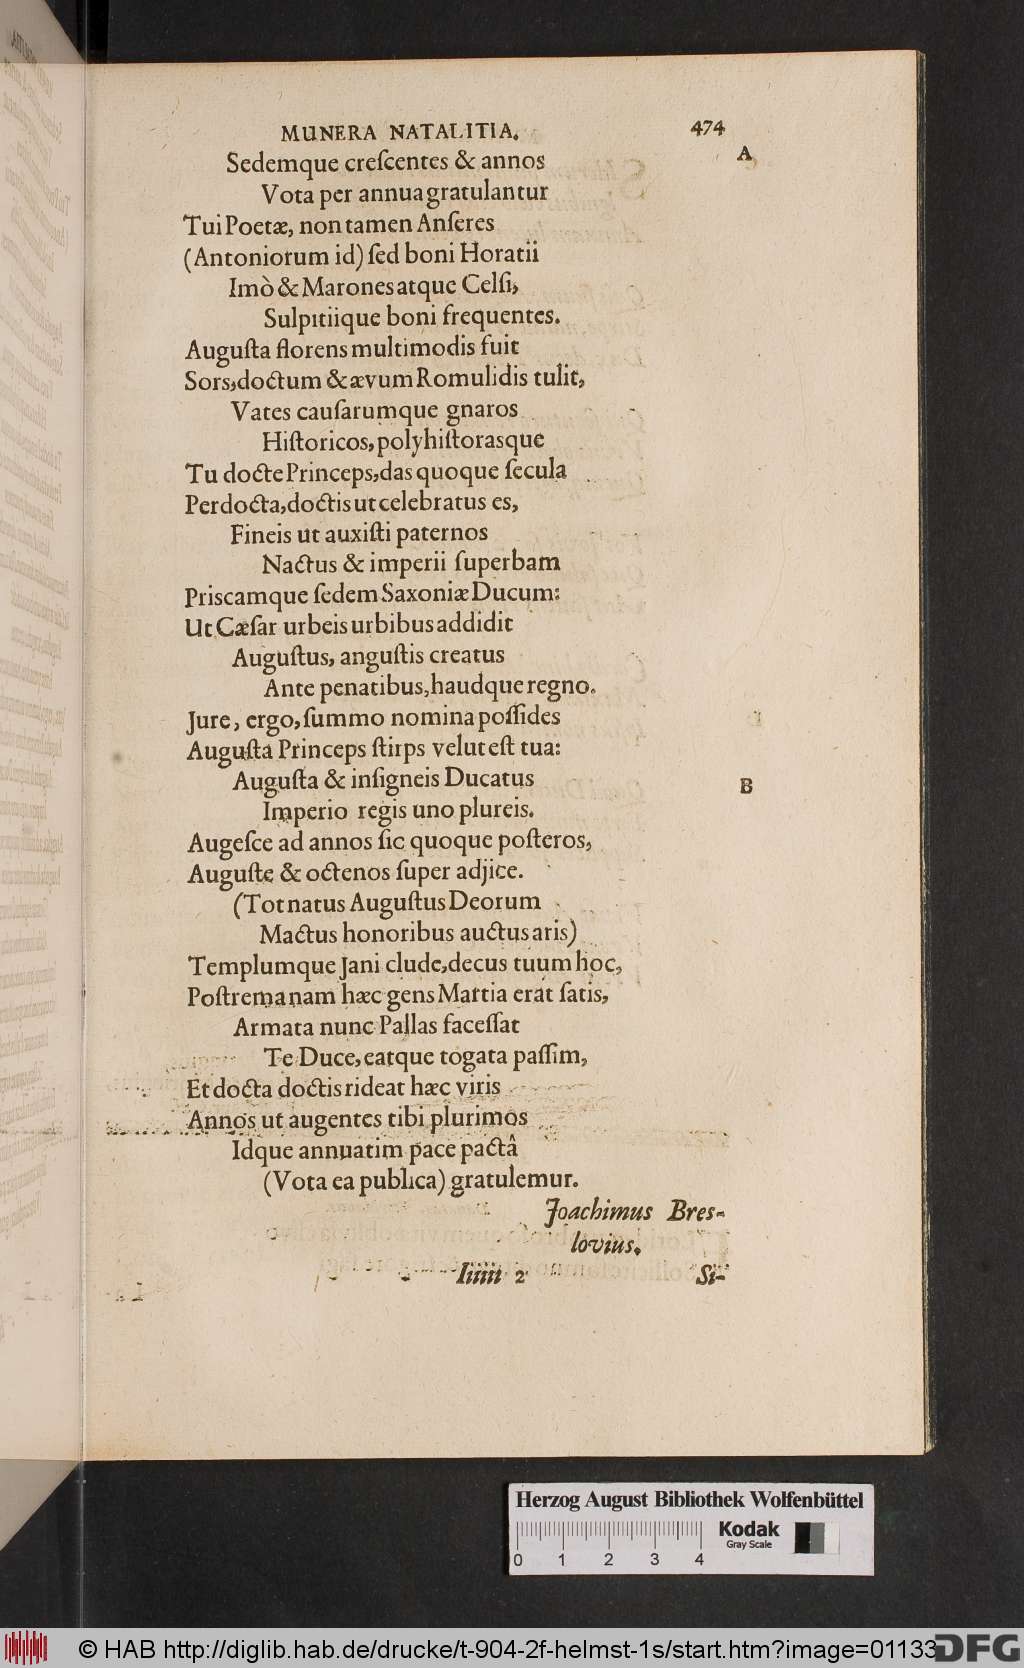 MUNERA NATALITIA. 474
A
Sedemque creſcentes & annos
Vota per annua gratulantur
Tui Poetæ, non tamen Anſeres
(Antoniorum id) ſed boni Horatii
Imò & Marones atque Celſi,
Sulpitiique boni frequentes.
Auguſta florens multimodis fuit
Sors, doctum & ævum Romulidis tulit,
Vates cauſarumque gnaros
Hiſtoricos, polyhiſtorasque
Tu docte Princeps, das quoque ſecula
Perdocta, doctis ut celebratus es,
Fineis ut auxiſti paternos
Nactus & imperii ſuperbam
Priscamque ſedem Saxoniæ Ducum:
Ut Cæſar urbeis urbibus addidit
Auguſtus, anguſtis creatus
Ante penatibus, haudque regno.
Jure, ergo, ſummo nomina poſſides
Auguſta Princeps ſtirps velut eſt tua:
Auguſta & inſigneis Ducatus
B
Imperio regis uno plureis.
Augeſce ad annos ſic quoque poſteros,
Auguſte & octenos ſuper adjice.
(Tot natus Auguſtus Deorum
Mactus honoribus auctus aris)
Templumque Jani clude, decus tuum hoc,
Poſtrema nam hæc gens Martia erat ſatis,
Armata nunc Pallas faceſſat
Te Duce, eatque togata paſſim,
Et docta doctis rideat hæc viris
Annos ut augentes tibi plurimos
Idque annuatim pace pactâ
(Vota ea publica) gratulemur.
Joachimus Bres-
lovius.
Iiiiii 2
Si-
Herzog August Bibliothek Wolfenbüttel
Kodak
Gray Scale
0 1 2 3 4
© HAB http://diglib.hab.de/drucke/t-904-2f-helmst-1s/start.htm?image=01133
DFG